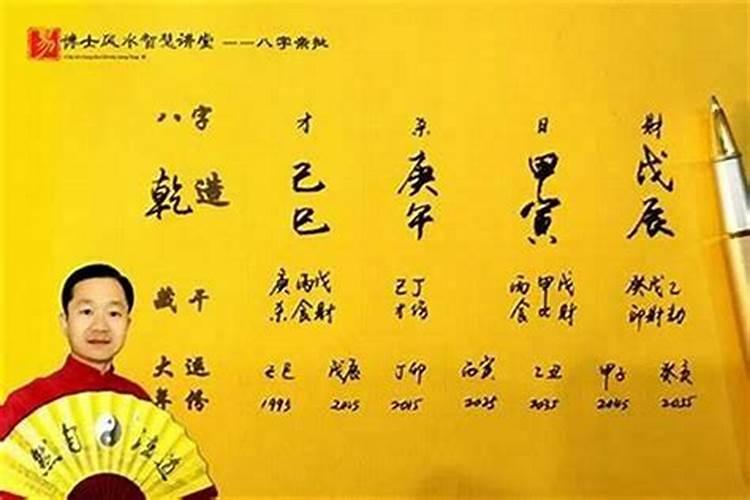 易 博士风水智慧讲堂 ——八字亲批
八字 才 杀 日 财
乾造 己 庚 甲 戊
巳 午 寅 辰
藏干 庚丙戊 己丁 丙甲戊 癸戊乙
杀食财 才伤 食 财 印财劫
大运 己巳 戊辰 丁卯 丙寅 乙丑 甲子 癸亥
年份 1995 2015 2025 2035 2045 2055
道法自然